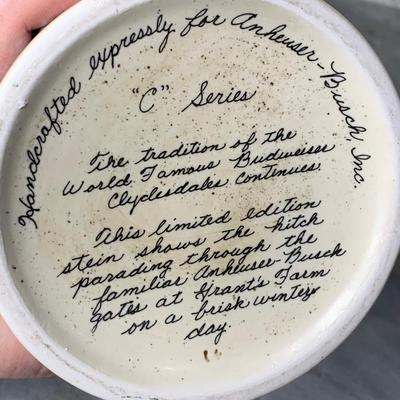 Handcrafted expressly for Anheuser-Busch, Inc.
"C" Series
The tradition of the
World Famous Budweiser
Clydesdales continues.
This limited edition
stein shows the hitch
parading through the
familiar Anheuser-Busch
gates at Grant's Farm
on a brisk winter
day.